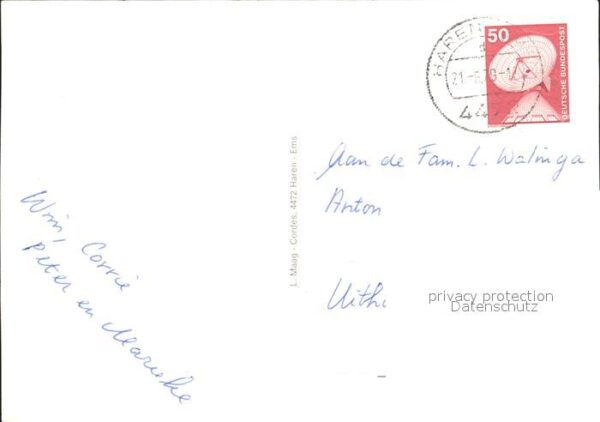 HAREN
21.-6.79-1
447
50
DEUTSCHE BUNDESPOST
L. Maag - Cordes, 4472 Haren - Ems
Aan de Fam. L. Walinga
Anton
Uith
privacy protection
Datenschutz
Wim, Corrie
Peter en Marieke